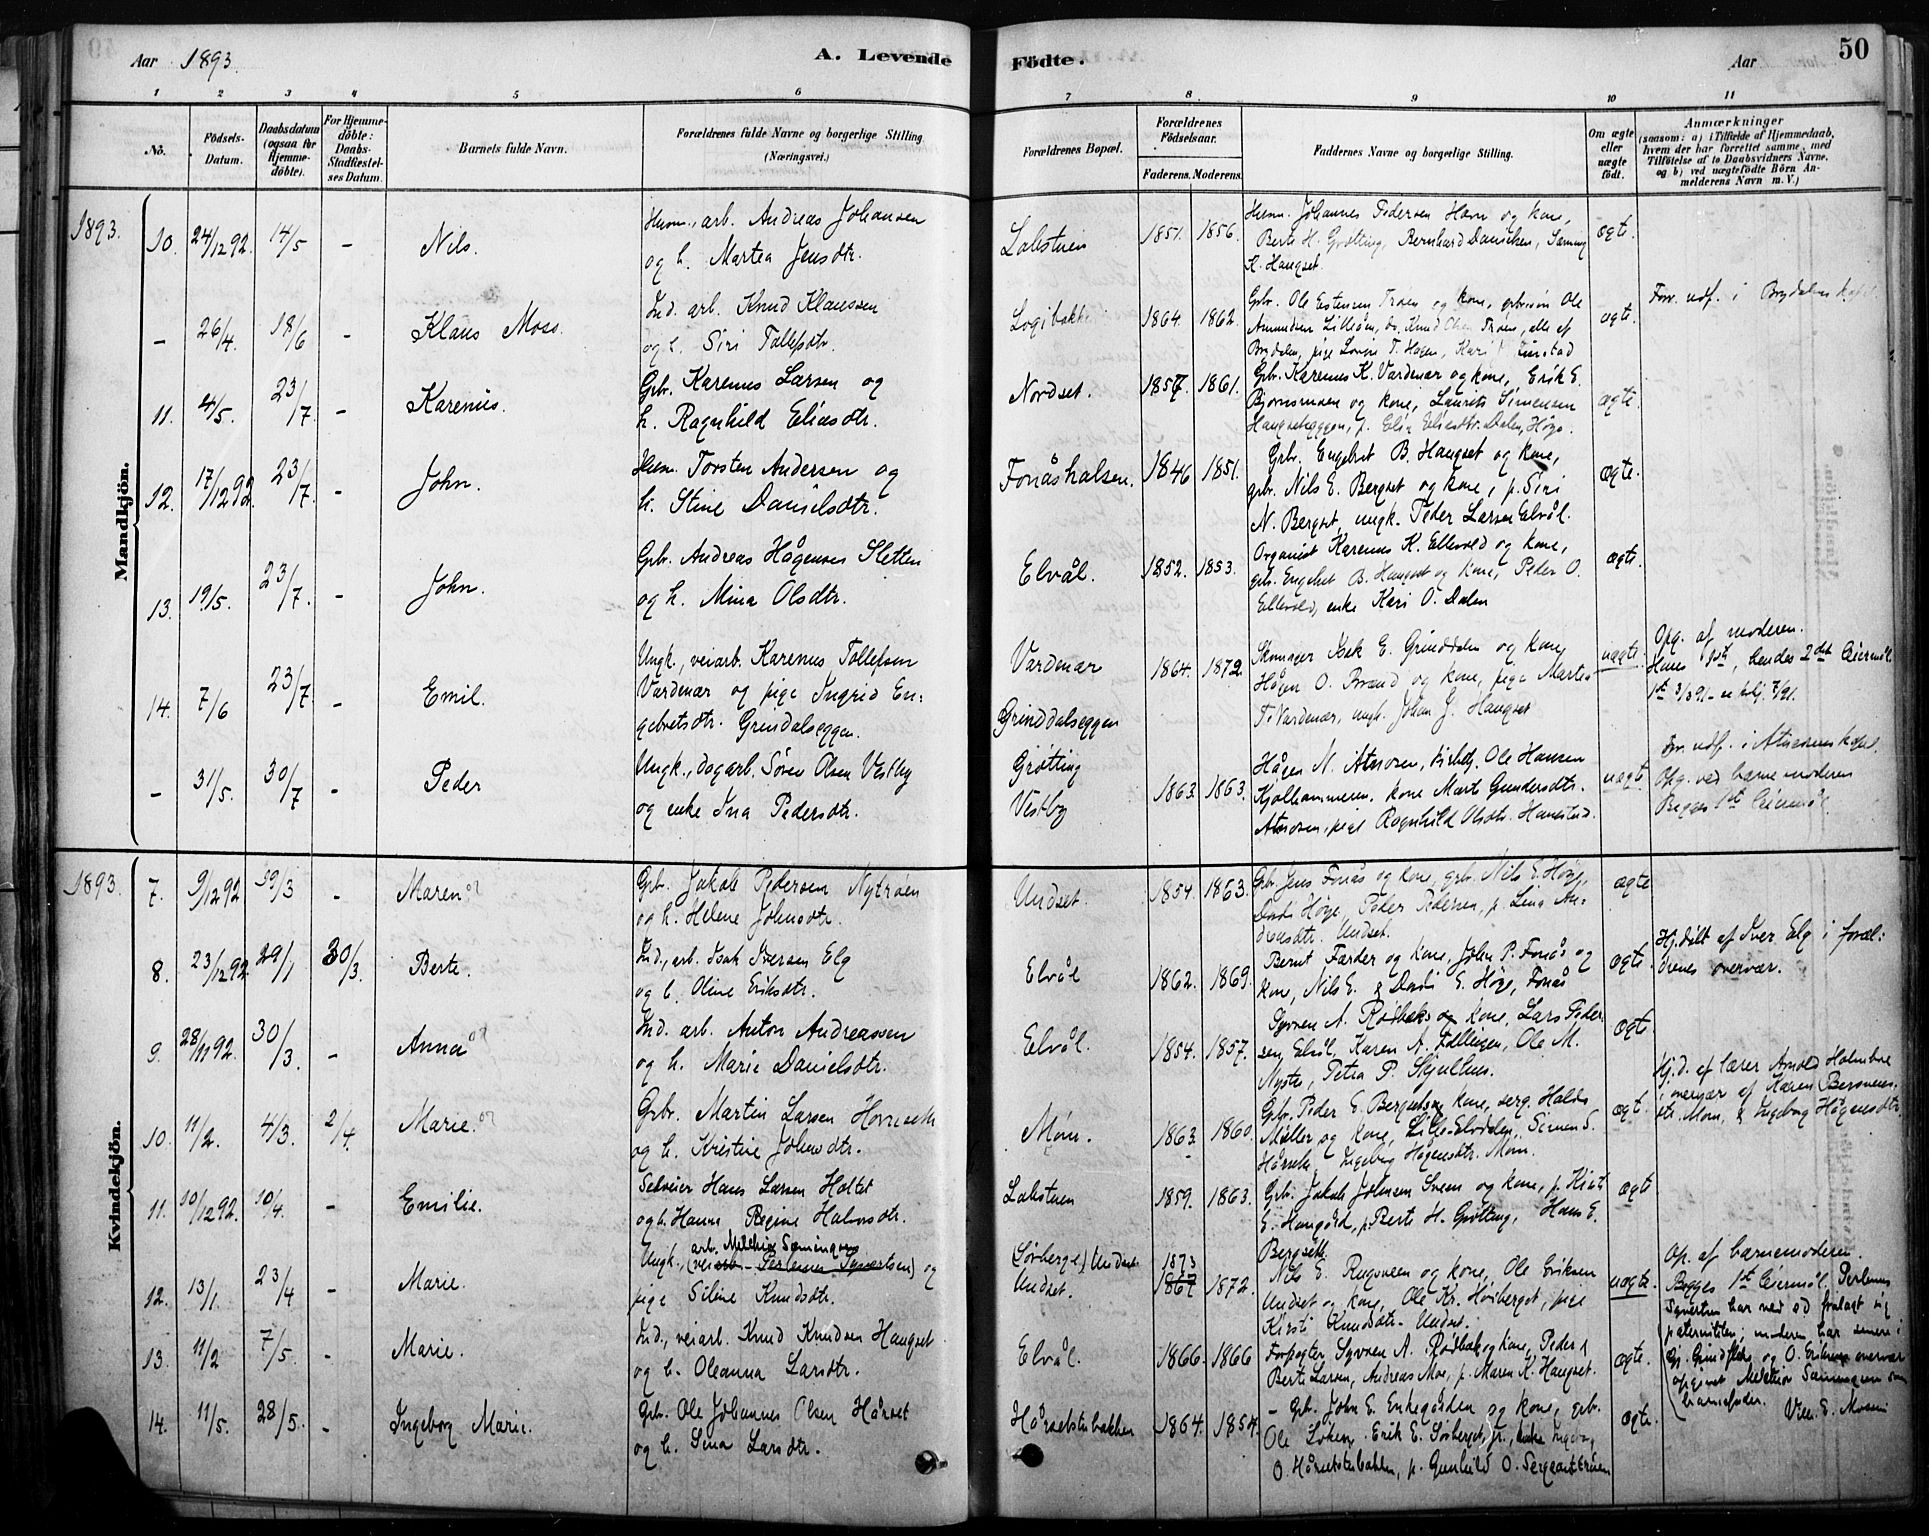 Aar 1893. A. Levende Födte. Aar 50
1 2 3 4 5 6 7 8 9 10 11
No. Födsels-Datum. Daabsdatum (ogsaa for Hjemmedöbte). For Hjemmedöbte: Daabs-Stadfæstelses Datum. Barnets fulde Navn. Forældrenes fulde Navne og borgerlige Stilling (Næringsvei.) Forældrenes Bopæl. Forældrenes Födselsaar. Faderens. Moderens. Faddernes Navne og borgerlige Stilling. Om ægte eller uægte födt. Anmærkninger (saasom: a) i Tilfælde af Hjemmedaab, hvem der har forrettet samme, med Tilföielse af to Daabsvidners Navne, og b) ved uægtefödte Börn Anmelderens Navn m. V.)
Mandkjön.
1893. 10. 24/12 92. 14/5 - Nils. Husm., arb. Andreas Johansen
og h. Martea Jensdtr. Labstuen 1851. 1856. Husm. Johannes Pedersen Havn og kone,
Berte H. Grøtting, Bernhard Danielsen, Sæming
K. Haugset. ægte.
- 26/4. 18/6 - Klaus Moss. Ind. arb. Knud Klaussen
og h. Siri Tollefsdtr. 1864. 1862. Gbr. Ole Estensen Troen og kone, gbrsøn Ole
Amundsen Lilleøen, do. Knud Olsen Troen, alle af
Brydalen, pige Lovise T. Hagen, Kari ægte. Forr. udf. i Brydalen kap.
11. 4/5. 23/7 - Karenius. Gbr. Karenus Larsen og
h. Ragnhild Eliasdtr. Nordset. 1857 1861. Gbr. Karenus K. Vardenær og kone, Erik E.
Bjørnsmoen og kone, Laurits Simensen
Haugseteggen, p. Elin Eliasdtr. Dalen, Høgo. ægte.
12. 17/12 92. 23/7. - John. Husm. Torsten Andersen og
h. Stine Danielsdtr. Fonåshalsen. 1846 1851. Gbr. Engebret B. Haugset og kone,
gbr. Nils E. Bergset og kone, p. Siri
N. Bergset, ungk. Peder Larsen Elvål. ægte.
13. 19/5. 23/7. - John. Gbr. Andreas Hågensen Sletten
og h. Mina Olsdtr. Elvål. 1852. 1853. Organist Karenus K. Ellevold og kone,
gbr. Engebret B. Haugset og kone, Peder O.
Ellevold, enke Kari O. Dalen ægte.
14. 7/6 23/7. - Emil. Ungk., veiarb. Karenus Tollefsen
Vardenær og pige Ingrid En-
gebretsdtr. Grindalseggen. Vardenær
Grinddalseggen 1864. 1872 Skomager Isak E. Grinddalen og kone,
Hågen O. Brænd og kone, pige Martea
T. Vardenær, ungk. Johan J. Haugset uægte Opg. af moderen.
Hans 1ste, hendes 2det Leiermål
1st 3/3 91
- 31/5. 30/7 - Peder Ungk., dagarb. Søren Olsen Vestby
og enke Ina Pedersdtr. Grøtting
Vestby 1863. 1863. Hågen N. Atneosen, Ole Hansen
Kjølhammeren, kone Marit Gundersdtr.
Atneosen, pige Ragnhild Olsdtr. Hanestad. uægte Forr. udf. i Atneosens kapel.
Opg. ved barnemoderen
Begges 1st leiermål
Kvindekjön.
1893. 7. 9/12 92 19/3 - Maren Gbr. Jakob Pedersen Nytrøen
og h. Helene Johnsdtr. Undset. 1854. 1863. Gbr. Jens Fonås og kone, gbr. Nils E. Høye,
Dordi Høye, Peder Pedersen, p. Lina An-
dreasdtr. Undset. ægte
8. 23/12 92. 29/1 30/3. Berte. Ind., arb. Isak Iversen Elg
og h. Oline Eriksdtr. Elvål 1862. 1869. Bernt Færder og kone, John P. Fonås og
kone, Nils E. & Dordi E. Høye, Fonås ægte. Hj.døbt af Iver Elg i foræl-
drenes overvær.
9. 28/11 92. 30/3. - Anna Ind. arb. Anton Andreassen
og h. Marie Danielsdtr. Elvål. 1854. 1857. Syver A. Rødbak og kone, Lars Peder-
sen, Elvål, Karen A. Fallingen, Ole M.
Nyster, Petra P. Skjulhus. ægte
10. 11/2. 4/3. 2/4. Marie. Gbr. Martin Larsen Hornseth
og h. Kristine Johnsdtr. Møm. 1863. 1860. Gbr. Peder E. Bergset og kone, serg. Haldo
Müller og kone, Lille-Elvdalen, Simen S.
Hårseth, Ingeborg Hågensdtr. Møm. ægt. Hj.d. af lærer Arnold Holmboe
i overvær af Karen Bersvens-
dtr. Møm, & Ingeborg Hågensdtr.
11. 10/12 92. 10/4. - Emilie. Selveier Hans Larsen Holtet
og h. Hanna Regine Halvorsdtr. Labstuen 1859. 1863. Gbr. Jakob Johnsen Sveen og kone, p.
E. Haugård, p. Berte H. Grøtting, Hans E.
Bergseth. ægte
12. 13/1 23/4 - Marie. Ungk., arb. Melchior Sæmingsen
(veiarb. Perlemus Syvertsen) og
pige Siline Knudsdtr. (Sørberget) Undset.
Undset. 1873
1867 1872. Nils E. Rugsveen og kone, Ole Eriksen
Undset og kone, Ole Kr. Høiberget, pige
Kirsti Knudsdtr. Undset. uægte. Op. af barnemoderen.
Begges 1st leiermål. Perlemus
Syvertsen har ved ed fralagt sig
paterniteten; moderen har senere i
og O. Eriksen overvær
opgivet Melchior Sæmingsen som
barnefader.
13. 11/2 7/5. - Marie. Ind., veiarb. Knud Knudsen Haugset
og h. Oleanna Larsdtr. Elvål. 1866. 1866 Forpagter Syver A. Rødbak og kone, Peder &
Berte Larsen, Andreas Moe, p. Maren K. Haugset. ægte
14. 11/5. 28/5. - Ingeborg Marie. Gbr. Ole Johannes Olsen Hårset
og h. Sina Larsdtr. Hårsetstubakken 1864. 1854. - Gbr. John E. Enkegården og kone, gbr.
Ole Løken, Erik E. Sørberget, jr., enke Ingeborg
O. Hårsetstubakken, p. Gunhild O. ægte.